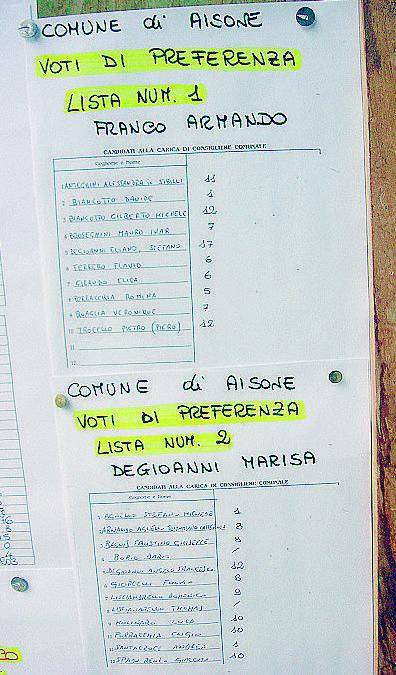 COMUNE di AISONE
VOTI DI PREFERENZA
LISTA NUM. 1
FRANCO ARMANDO
CANDIDATI ALLA CARICA DI CONSIGLIERE COMUNALE
Cognome e Nome
1 ALESSANDRA in 11
2 BIANCOTTO DAVIDE 1
3 BIANCOTTO GILBERTO MICHELE 12
4 MAURO IVAR 7
5 DEGIOANNI ELIANO, STEFANO 17
6 FERRERO FLAVIO 6
7 GIRAUDO ELISA 6
8 PORRACCHIA ROMINA 5
9 QUAGLIA VERONIQUE 7
10 TROCELLO PIETRO (PIERO) 12
11
12
COMUNE di AISONE
VOTI DI PREFERENZA
LISTA NUM. 2
DEGIOANNI MARISA
CANDIDATI ALLA CARICA DI CONSIGLIERE COMUNALE
Cognome e Nome
1 STEFANO MICHELE 1
2 ARNAUDO AGNESE 8
3 FAUSTINO GIUSEPPE 8
4 /
5 DEGIOANNI ANGELO FRANCESCO 12
6 FULVIO 8
7 DOMENICO 9
8 THOMAS /
9 MOLINARO LUCA 10
10 PORRACCHIA ELIGIO 10
11 SANTACROCE ANDREA 1
12 10